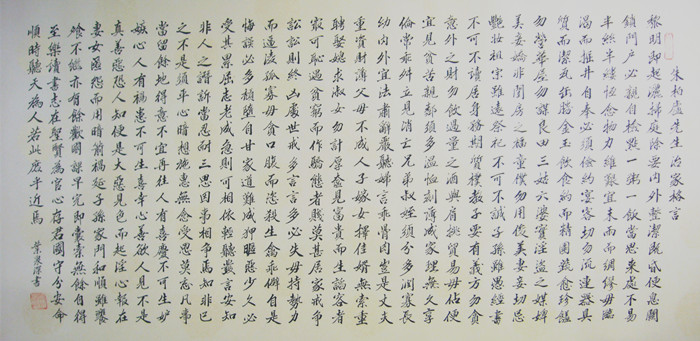 朱柏廬先生治家格言
黎明即起灑掃庭除要內外整潔既昏便息關
鎖門戶必親自檢點一粥一飯當思來處不易
半絲半縷恆念物力維艱宜未雨而綢繆毋臨
渴而掘井自奉必須儉約宴客切勿流連器具
質而潔瓦缶勝金玉飲食約而精園蔬愈珍饈
勿營華屋勿謀良田三姑六婆實淫盜之媒婢
美妾嬌非閨房之福童僕勿用俊美妻妾切忌
艷妝祖宗雖遠祭祀不可不誠子孫雖愚經書
不可不讀居身務期質樸教子要有義方勿貪
意外之財勿飲過量之酒與肩挑貿易毋佔便
宜見貧苦親鄰須多溫恤刻薄成家理無久享
倫常乖舛立見消亡兄弟叔姪須分多潤寡長
幼內外宜法肅辭嚴聽婦言乖骨肉豈是丈夫
重資財薄父母不成人子嫁女擇佳婿毋索重
聘娶媳求淑女勿計厚奩見富貴而生諂容者
最可恥遇貧窮而作驕態者賤莫甚居家戒爭
訟訟則終凶處世戒多言言多必失毋恃勢力
而逼凌孤寡毋貪口腹而恣殺生禽乖僻自是
悔誤必多頹惰自甘家道難成狎暱惡少久必
受其累屈志老成急則可相依輕聽發言安知
非人之譖訴當忍耐三思因事相爭焉知非己
之不是須平心暗想施惠無念受恩莫忘凡事
當留餘地得意不宜再往人有喜慶不可生妒
嫉心人有禍患不可生喜幸心善欲人見不是
真善惡恐人知便是大惡見色而起淫心報在
妻女匿怨而用暗箭禍延子孫家門和順雖饔
飧不繼亦有餘歡國課早完即囊橐無餘自得
至樂讀書志在聖賢為官心存君國守分安命
順時聽天為人若此庶乎近焉
葉 書